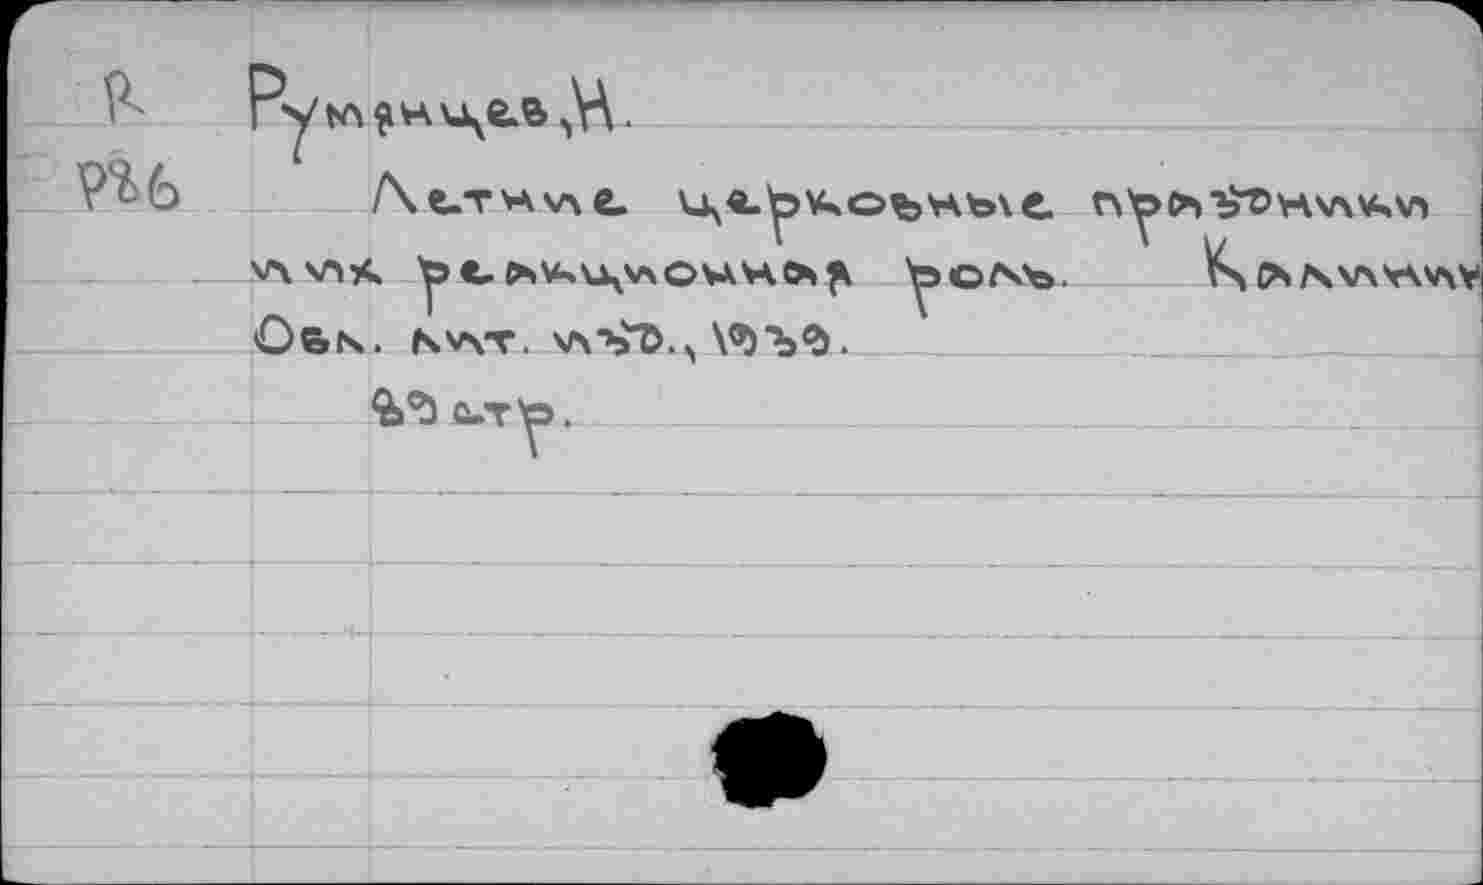 R Румянцев, Н.
Р86 Летние церковные праздники
и их реакционная роль. Калинин
Обл. лит. изд., 1939.